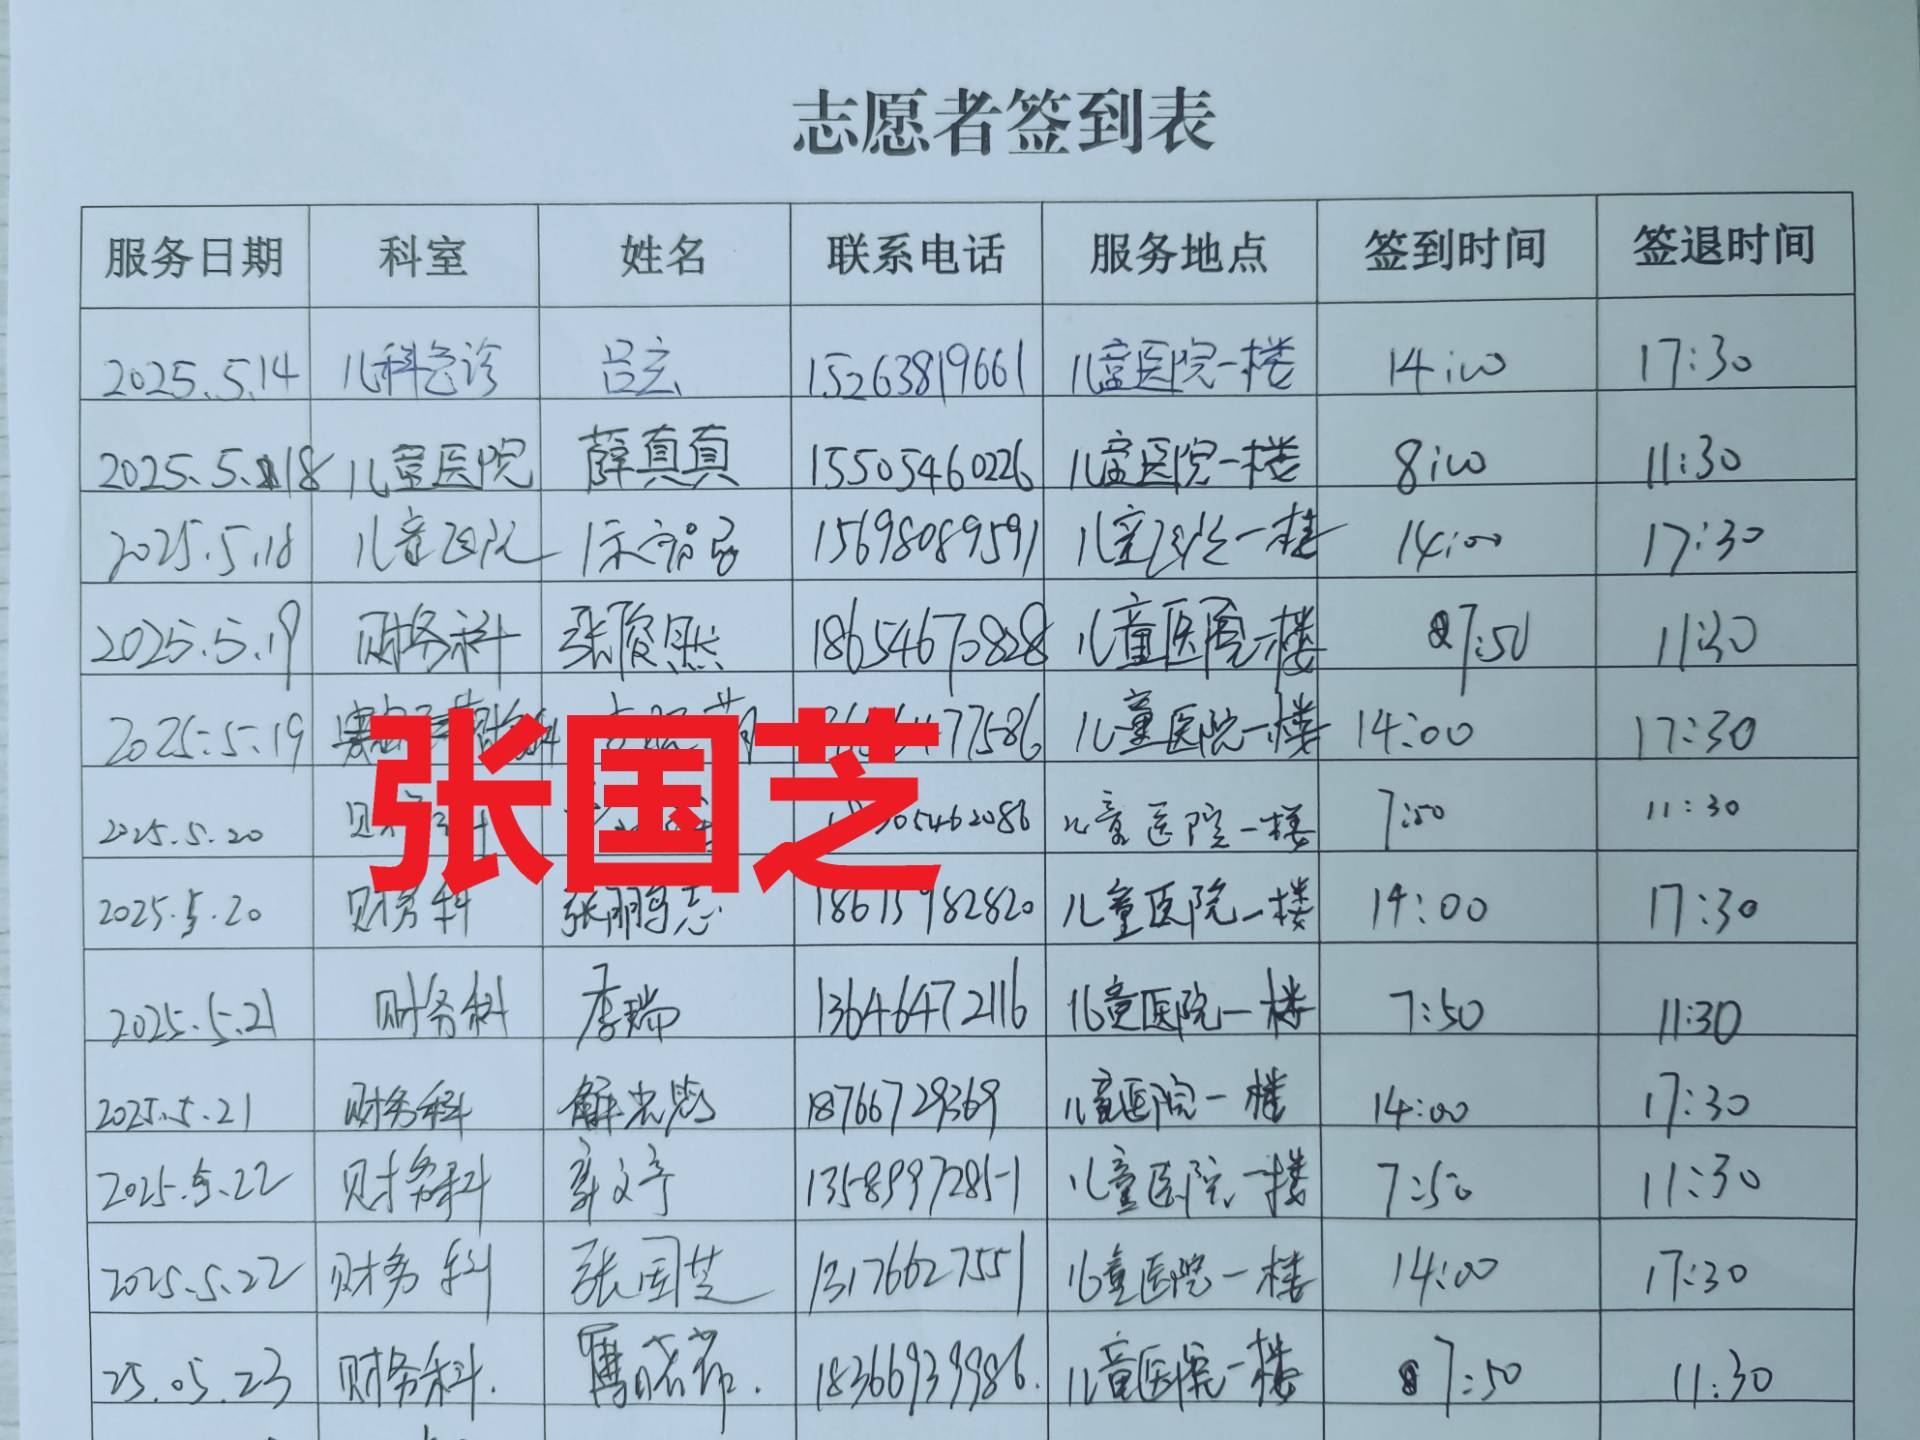 志愿者签到表
服务日期 科室 姓名 联系电话 服务地点 签到时间 签退时间
2025.5.14 儿科急诊 吕玄 15263819661 儿童医院一楼 14:00 17:30
2025.5.18 儿童医院 薛真真 15505460226 儿童医院一楼 8:00 11:30
2025.5.18 儿童医院 15698089591 儿童医院一楼 14:00 17:30
2025.5.19 财务科 张俊然 18654670828 儿童医院一楼 7:50 11:30
2025.5.19 儿童医院一楼 14:00 17:30
张国芝
2025.5.20 儿童医院一楼 7:50 11:30
2025.5.20 财务科 张鹏志 18615982820 儿童医院一楼 14:00 17:30
2025.5.21 财务科 李瑞 13646472116 儿童医院一楼 7:50 11:30
2025.5.21 财务科 18766729369 儿童医院一楼 14:00 17:30
2025.5.22 财务科 13589972851 儿童医院一楼 7:50 11:30
2025.5.22 财务科 张国芝 13176627551 儿童医院一楼 14:00 17:30
25.05.23 财务科. 18366939986. 儿童医院一楼 7:50 11:30